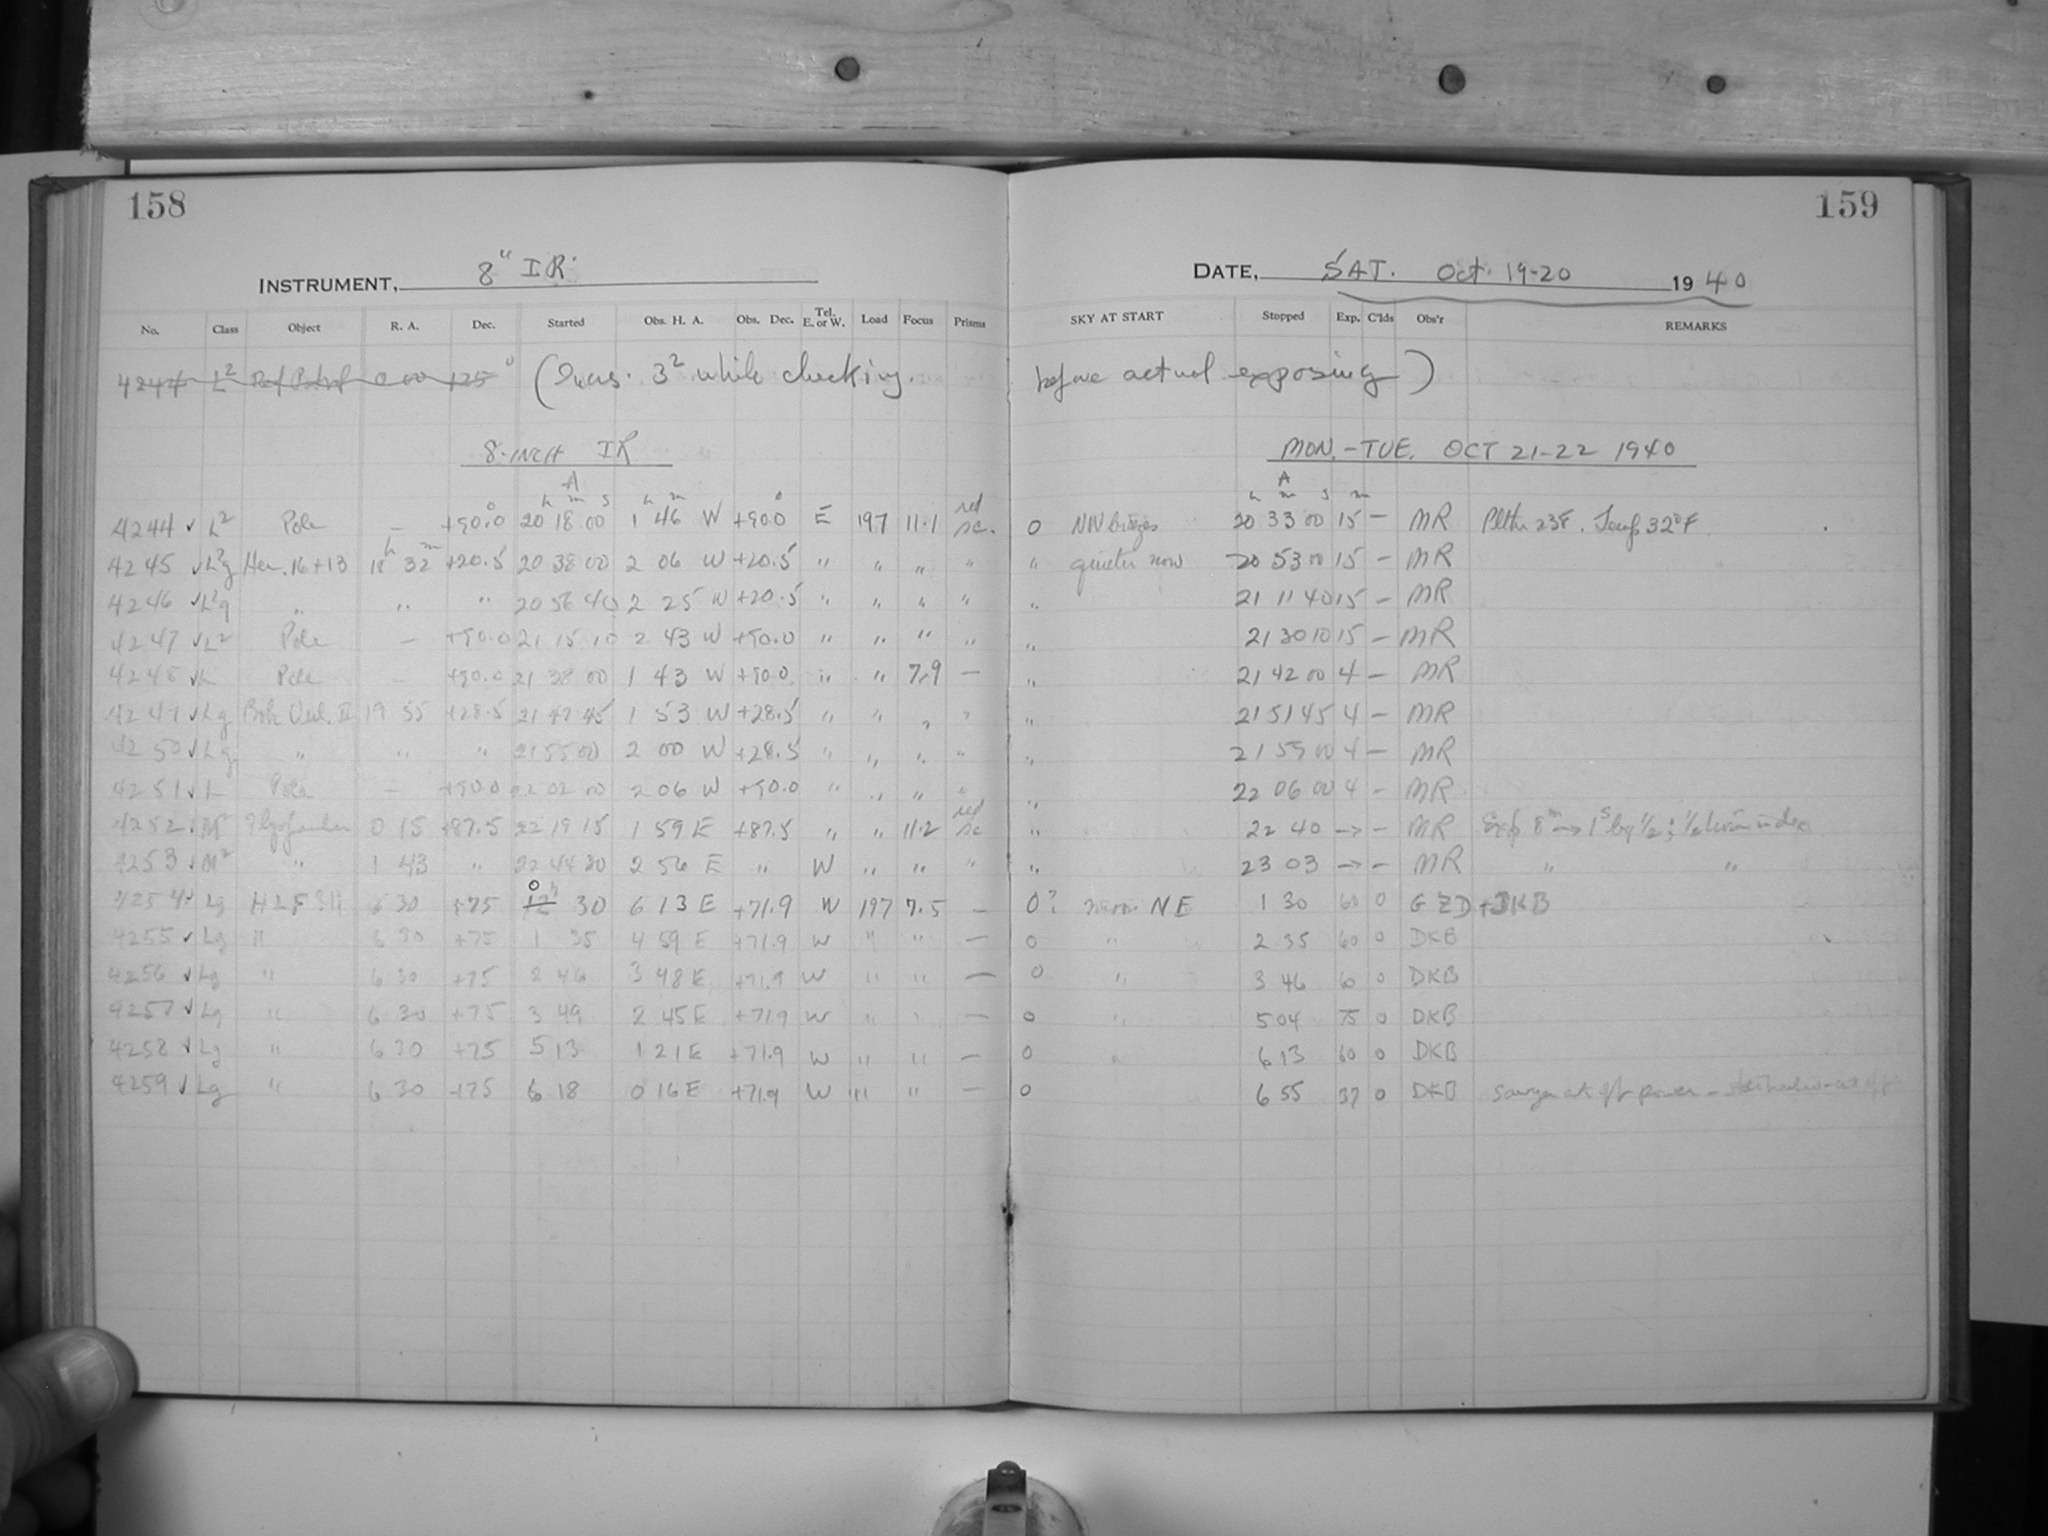 158 159
INSTRUMENT, 8" IR. DATE, SAT. Oct. 19-20 1940
No. Class Object R. A. Dec. Started Obs. H. A. Obs. Dec. Tel. E. or W. Load Focus Prisms SKY AT START Stopped Exp. C'lds Obs'r REMARKS
4244 L² 0 00 +25° ( 3² while checking. before actual exposing )
8-INCH IR MON. - TUE. OCT 21-22 1940
A A
h m s h m ° h m s m
4244 ✓ L² Pole – +90.0 20 18 00 1 46 W +90.0 E 197 11.1 red sc. 0 NW 20 33 00 15 – MR 23F. Temp 32°F
4245 ✓ L²g Her. 16+13 18 h 32 m +20.5 20 38 00 2 06 W +20.5 " " " " " quieter now 20 53 00 15 – MR
4246 ✓ L²g " " " 20 56 40 2 25 W +20.5 " " " " " 21 11 40 15 – MR
4247 ✓ L² Pole – +90.0 21 15 10 2 43 W +90.0 " " " " " 21 30 10 15 – MR
4248 ✓ L Pole – +90.0 21 38 00 1 43 W +90.0 " " 7.9 – " 21 42 00 4 – MR
4249 ✓ Lg 19 55 +28.5 21 47 45 1 53 W +28.5 " " " " " 21 51 45 4 – MR
4250 ✓ Lg " " " 21 55 00 2 00 W +28.5 " " " " " 21 59 00 4 – MR
4251 ✓ L Pole – +90.0 22 02 00 2 06 W +90.0 " " " " " 22 06 00 4 – MR
4252 ✓ M² 0 15 +87.5 22 19 15 1 59 E +87.5 " " 11.2 red sc " 22 40 → – MR Exp 8m → 1s by ½ ; ½
4253 ✓ M² " 1 43 " 22 44 30 2 56 E " W " " " " 23 03 → – MR " "
4254 ✓ Lg 6 30 +75 0 12h 30 6 13 E +71.9 W 197 7.5 – 0? NE 1 30 60 0 GZD + DKB
4255 ✓ Lg " 6 30 +75 1 35 4 59 E +71.9 W " " – 0 " 2 35 60 0 DKB
4256 ✓ Lg " 6 30 +75 2 46 3 48 E +71.9 W " " – 0 " 3 46 60 0 DKB
4257 ✓ Lg " 6 30 +75 3 49 2 45 E +71.9 W " " – 0 " 5 04 75 0 DKB
4258 ✓ Lg " 6 30 +75 5 13 1 21 E +71.9 W " " – 0 " 6 13 60 0 DKB
4259 ✓ Lg " 6 30 +75 6 18 0 16 E +71.9 W " " – 0 6 55 37 0 DKB power